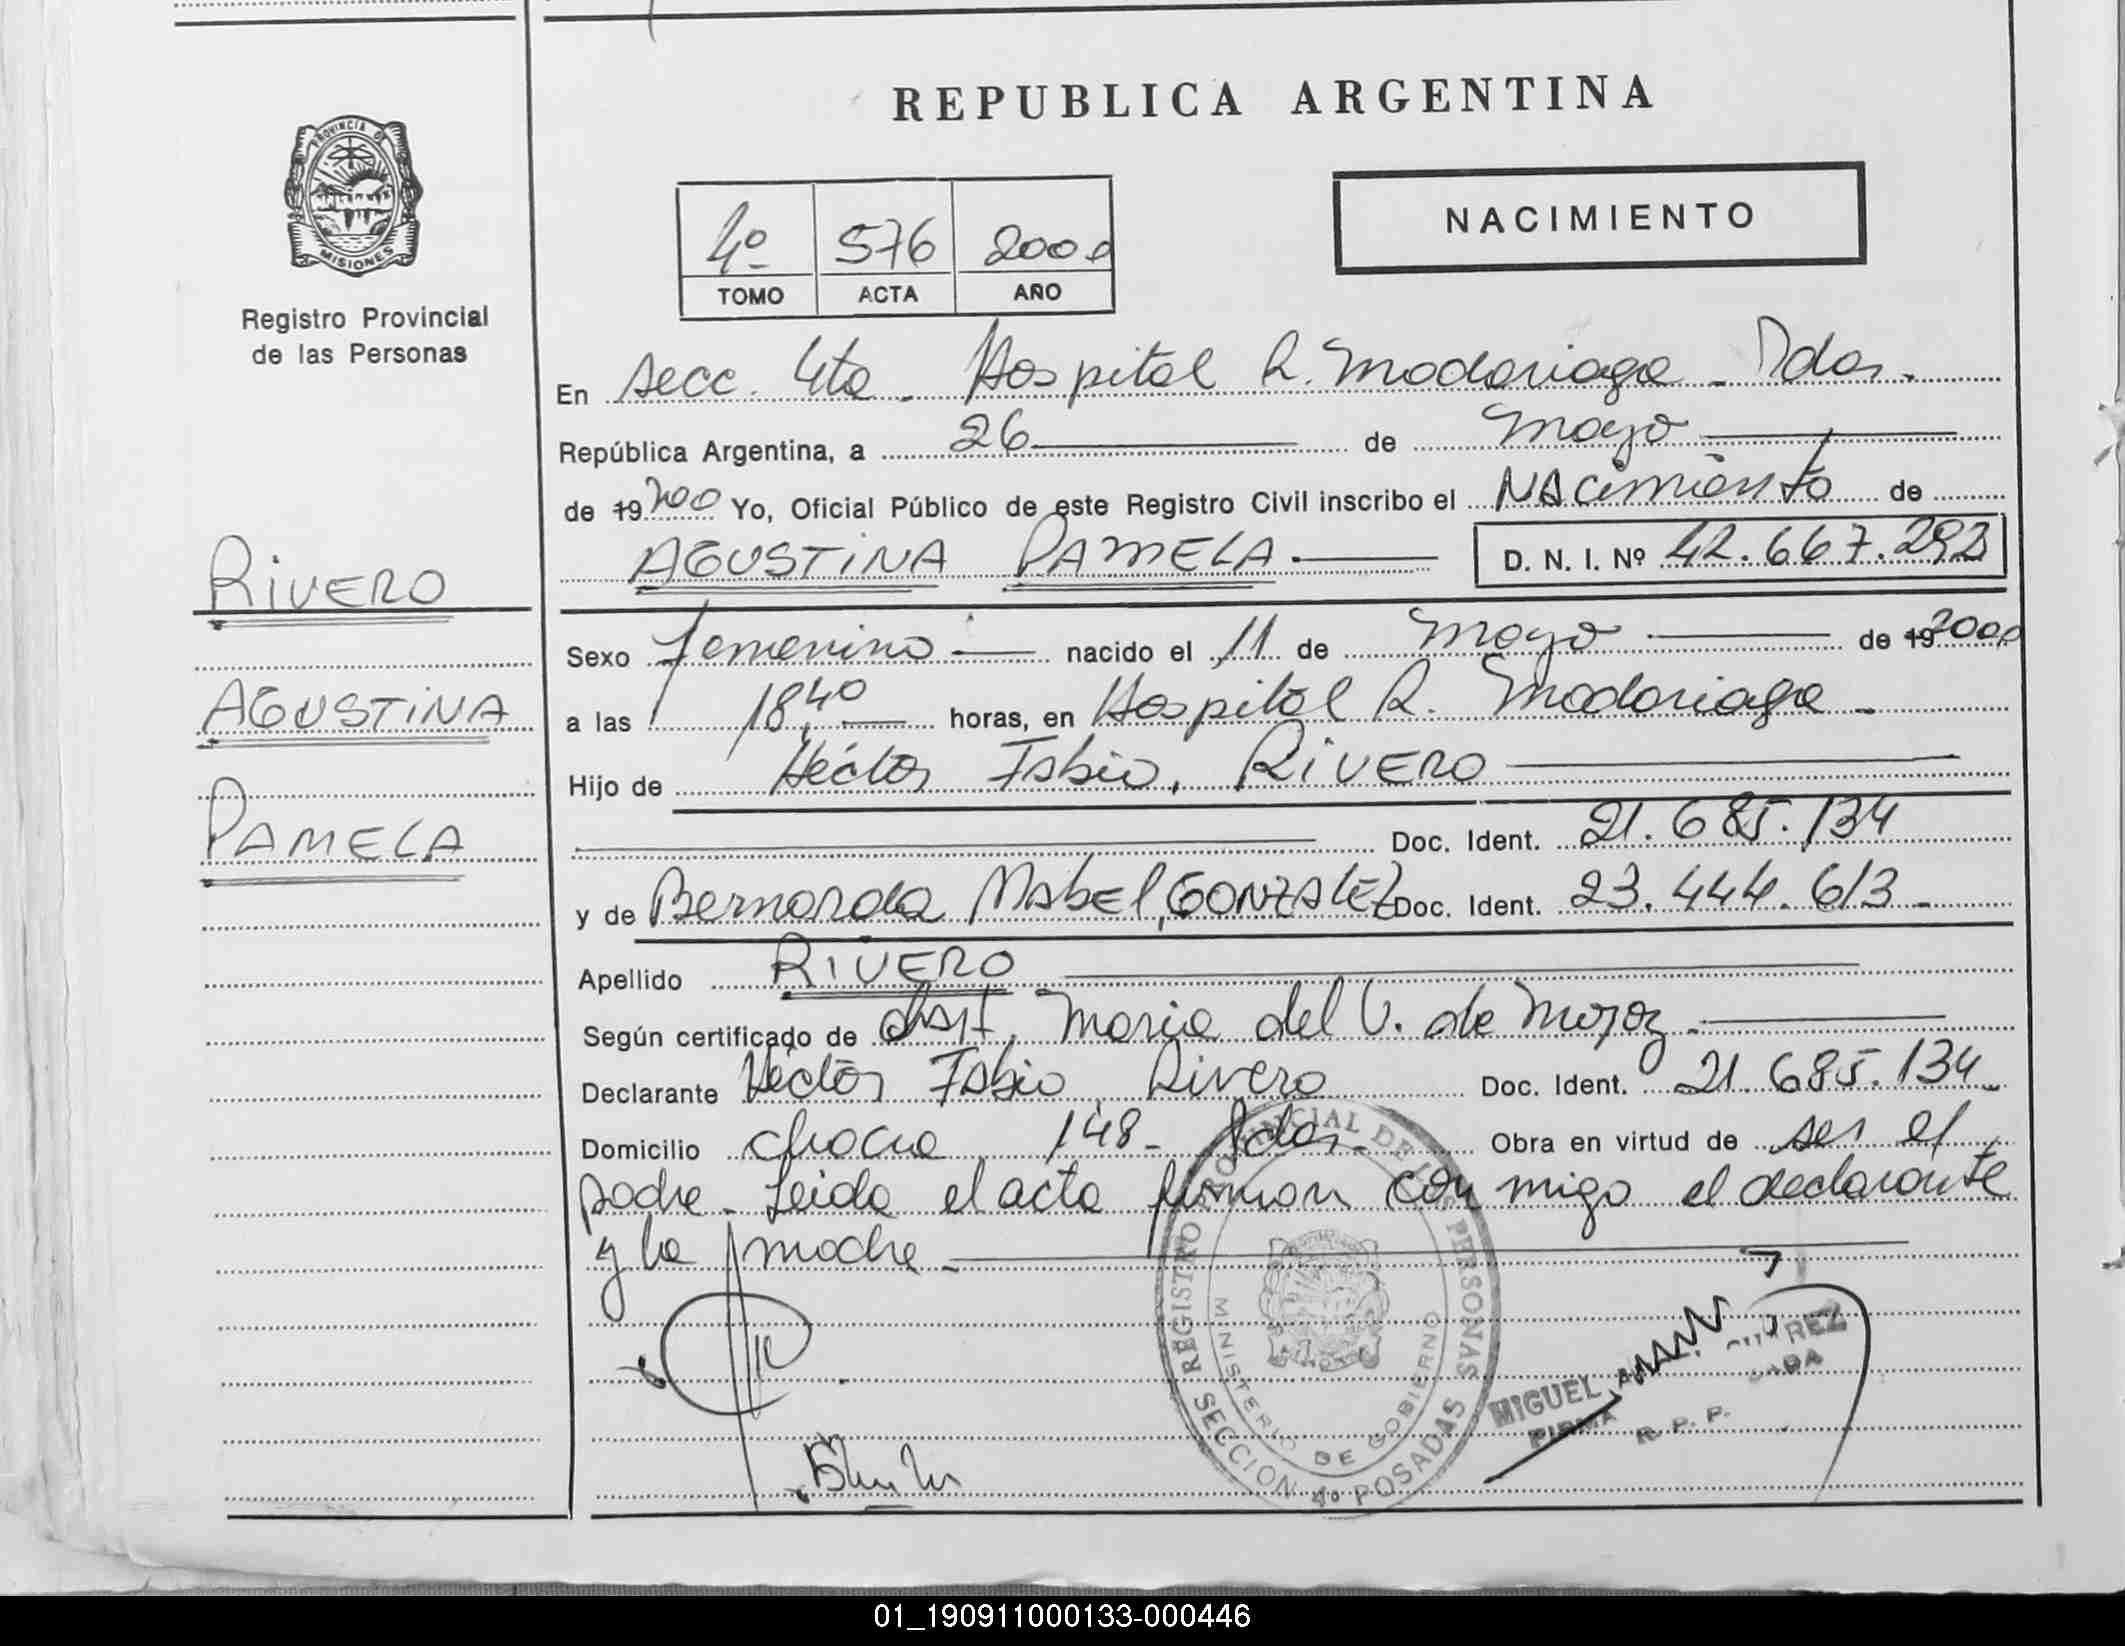 REPUBLICA ARGENTINA
PROVINCIA DE
MISIONES
Registro Provincial
de las Personas
4º 576 2000
TOMO ACTA AÑO
NACIMIENTO
En secc. 4ta. Hospital R. Madariaga - Pdas.
República Argentina, a 26 de Mayo
de 19 2000 Yo, Oficial Público de este Registro Civil inscribo el NAcimiento de
AGUSTINA PAMELA. D. N. I. Nº 42.667.292
RIVERO
AGUSTINA
PAMELA
Sexo femenino nacido el 11 de Mayo de 19 2000
a las 18,40 horas, en Hospital R. Madariaga -
Hijo de Héctor Fabio, RIVERO
Doc. Ident. 21.685.134
y de Bernarda MabEl, GONZALEZ Doc. Ident. 23.444.613 -
Apellido RIVERO
Según certificado de Obst. Maria del C. de
Declarante Héctor Fabio Rivero Doc. Ident. 21.685.134 -
Domicilio 148 - Pdas - Obra en virtud de ser el
padre - Leida el acta firman con migo el declarante
y la madre -
REGISTRO PROVINCIAL DE LAS PERSONAS
MINISTERIO DE GOBIERNO
SECCION 4º POSADAS
MIGUEL
FIRMA
R. P. P.
01_190911000133-000446